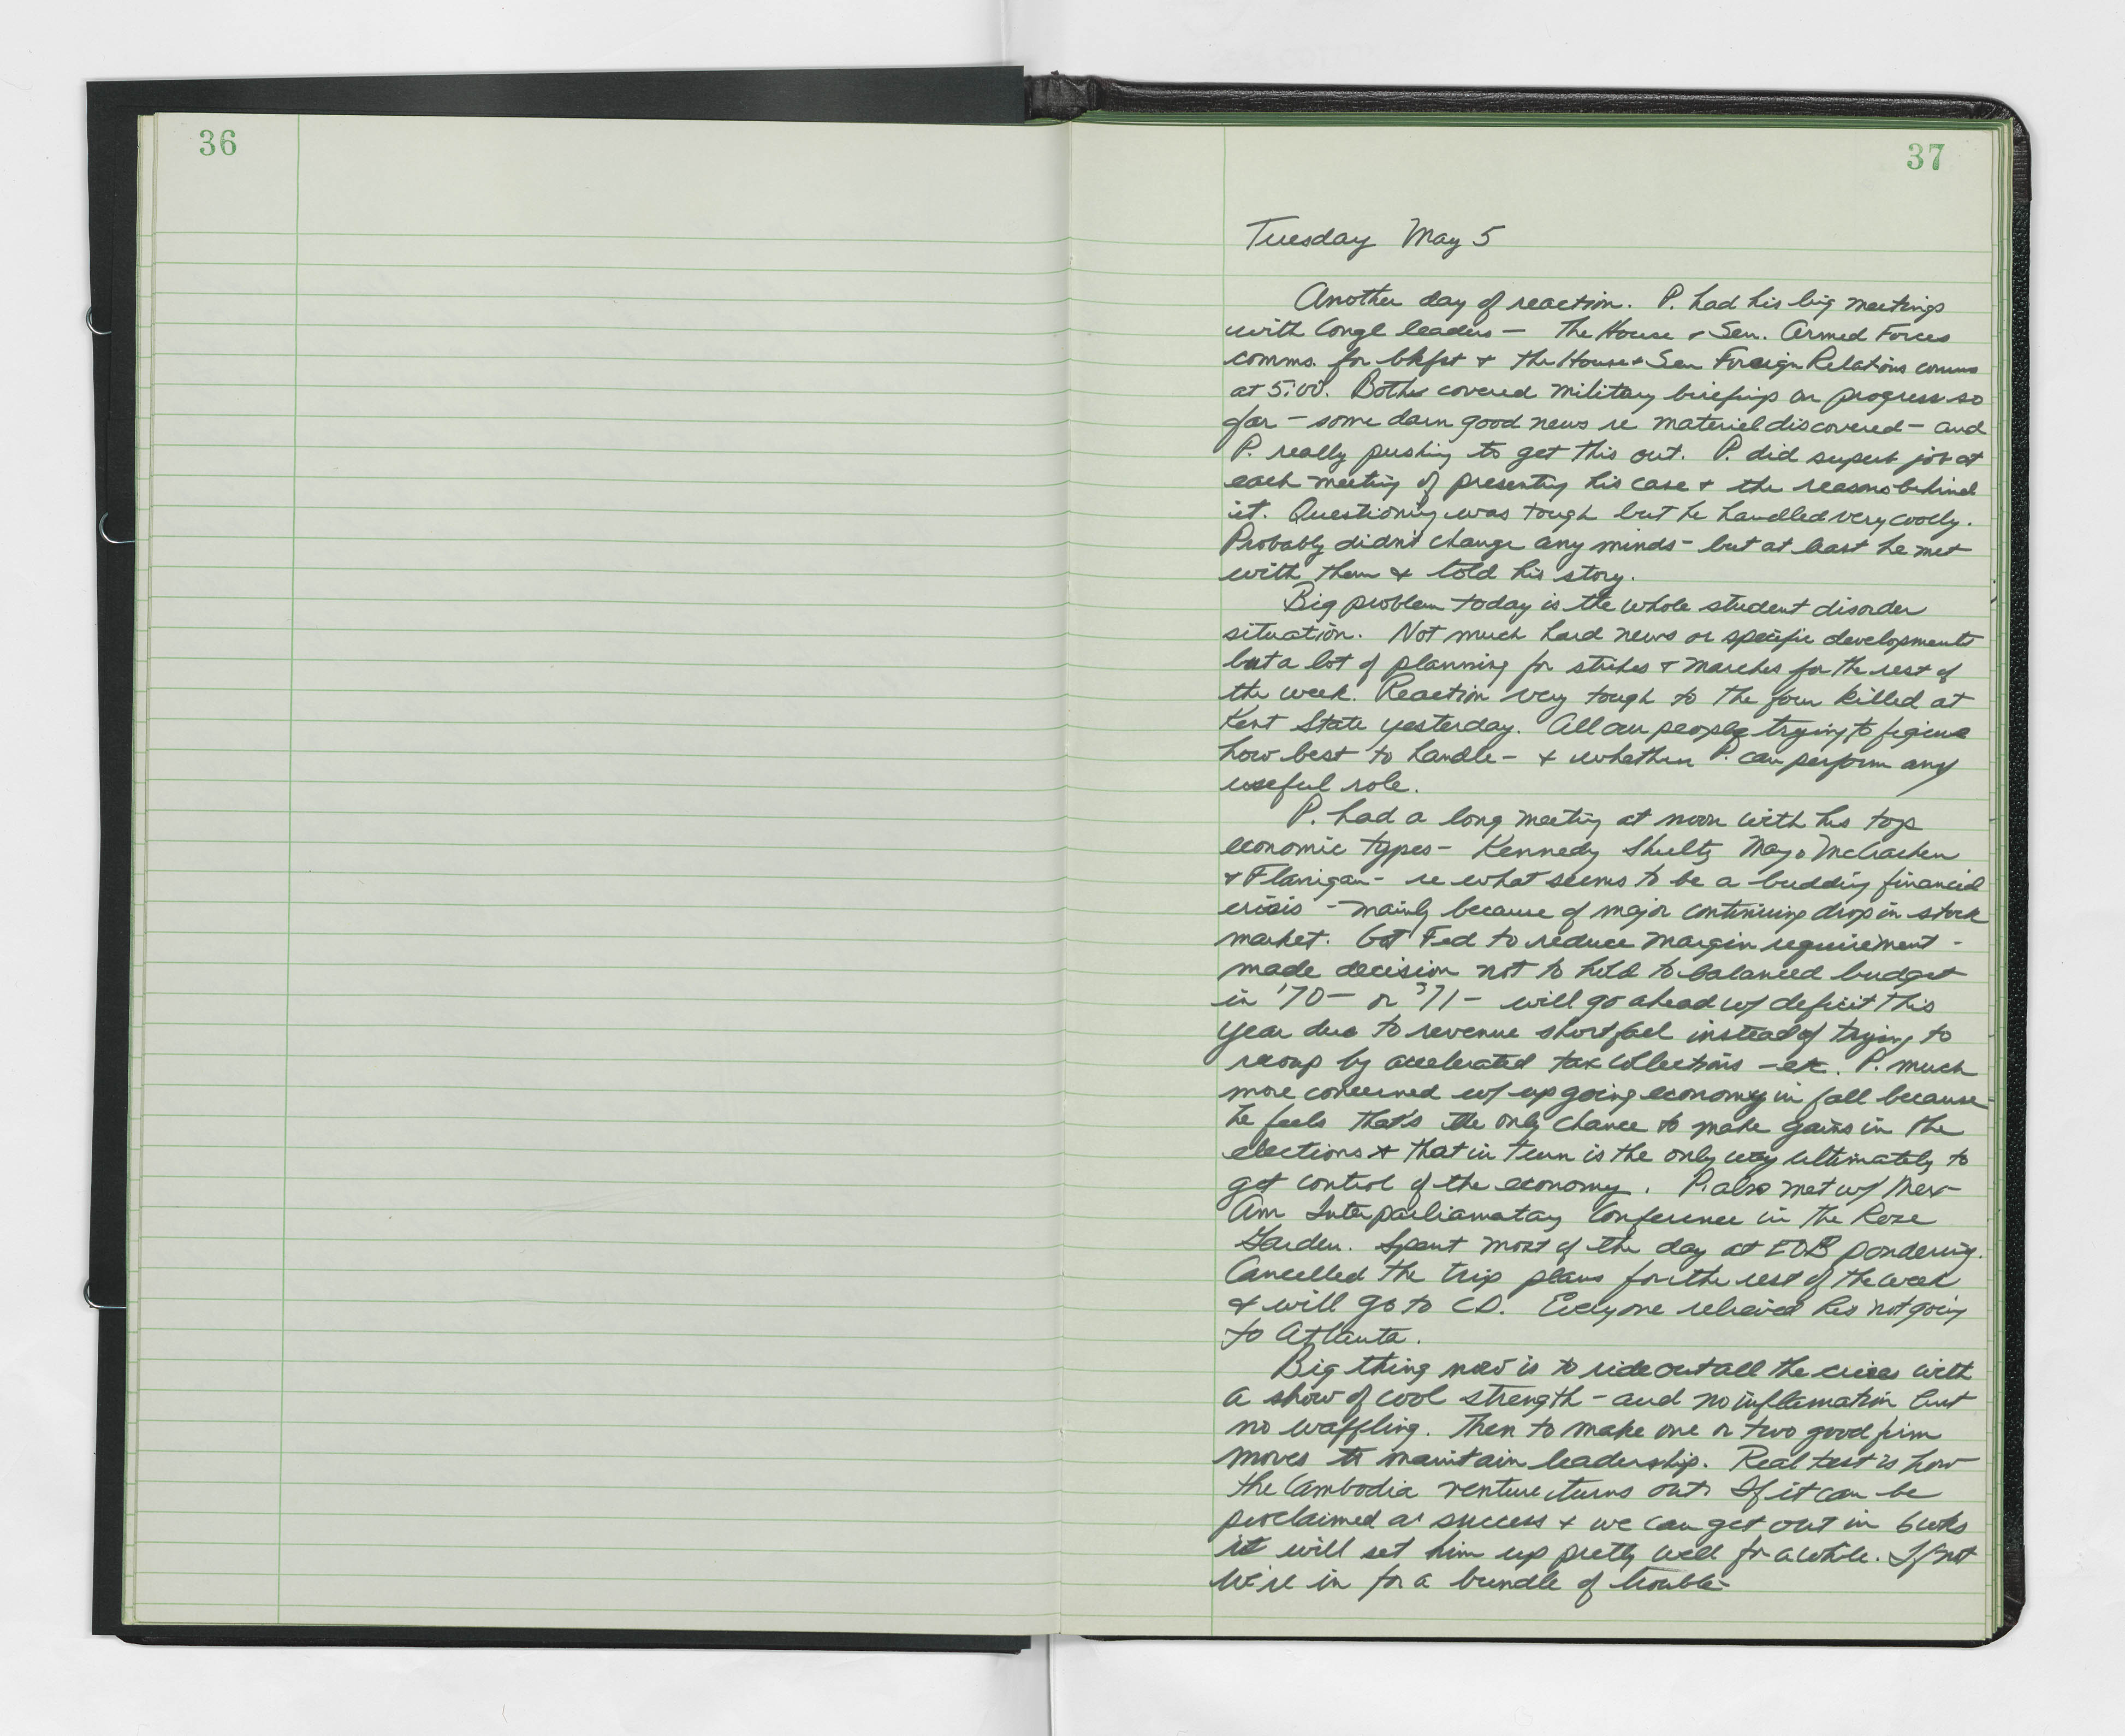 36
37
Tuesday May 5
Another day of reaction. P. had his big meetings
with Congl leaders — the House & Sen. Armed Forces
comms. for bkfst & the House & Sen Foreign Relations comms
at 5:00. Both covered military briefings on progress so
far — some darn good news re materiel discovered — and
P. really pushing to get this out. P. did superb job at
each meeting of presenting his case & the reasons behind
it. Questioning was tough but he handled very cooly.
Probably didn't change any minds — but at least he met
with them & told his story.
Big problem today is the whole student disorder
situation. Not much hard news or specific developments
but a lot of planning for strikes & marches for the rest of
the week. Reaction very tough to the four killed at
Kent State yesterday. All our people trying to figure
how best to handle — & whether P. can perform any
useful role.
P. had a long meeting at noon with his top
economic types — Kennedy Shultz Mayo McCracken
& Flanigan — re what seems to be a budding financial
crisis — mainly because of major continuing drop in stock
market. Got Fed to reduce margin requirement —
made decision not to hold to balanced budget
in '70 — or '71 — will go ahead w/ deficit this
year due to revenue shortfall instead of trying to
recoup by accelerated tax collections — etc. P. much
more concerned w/ up going economy in fall because
he feels that's the only chance to make gains in the
elections & that in turn is the only way ultimately to
get control of the economy. P. also met w/ Mex-
Am Interparliamatary Conference in the Rose
Garden. Spent most of the day at EOB pondering.
Cancelled the trip plans for the rest of the week
& will go to CD. Everyone relieved he's not going
to Atlanta.
Big thing now is to ride out all the crises with
a show of cool strength — and no inflamation but
no waffling. Then to make one or two good firm
moves to maintain leadership. Real test is how
the Cambodia venture turns out. If it can be
proclaimed a success & we can get out in 6 wks
it will set him up pretty well for a while. If not
we're in for a bundle of trouble